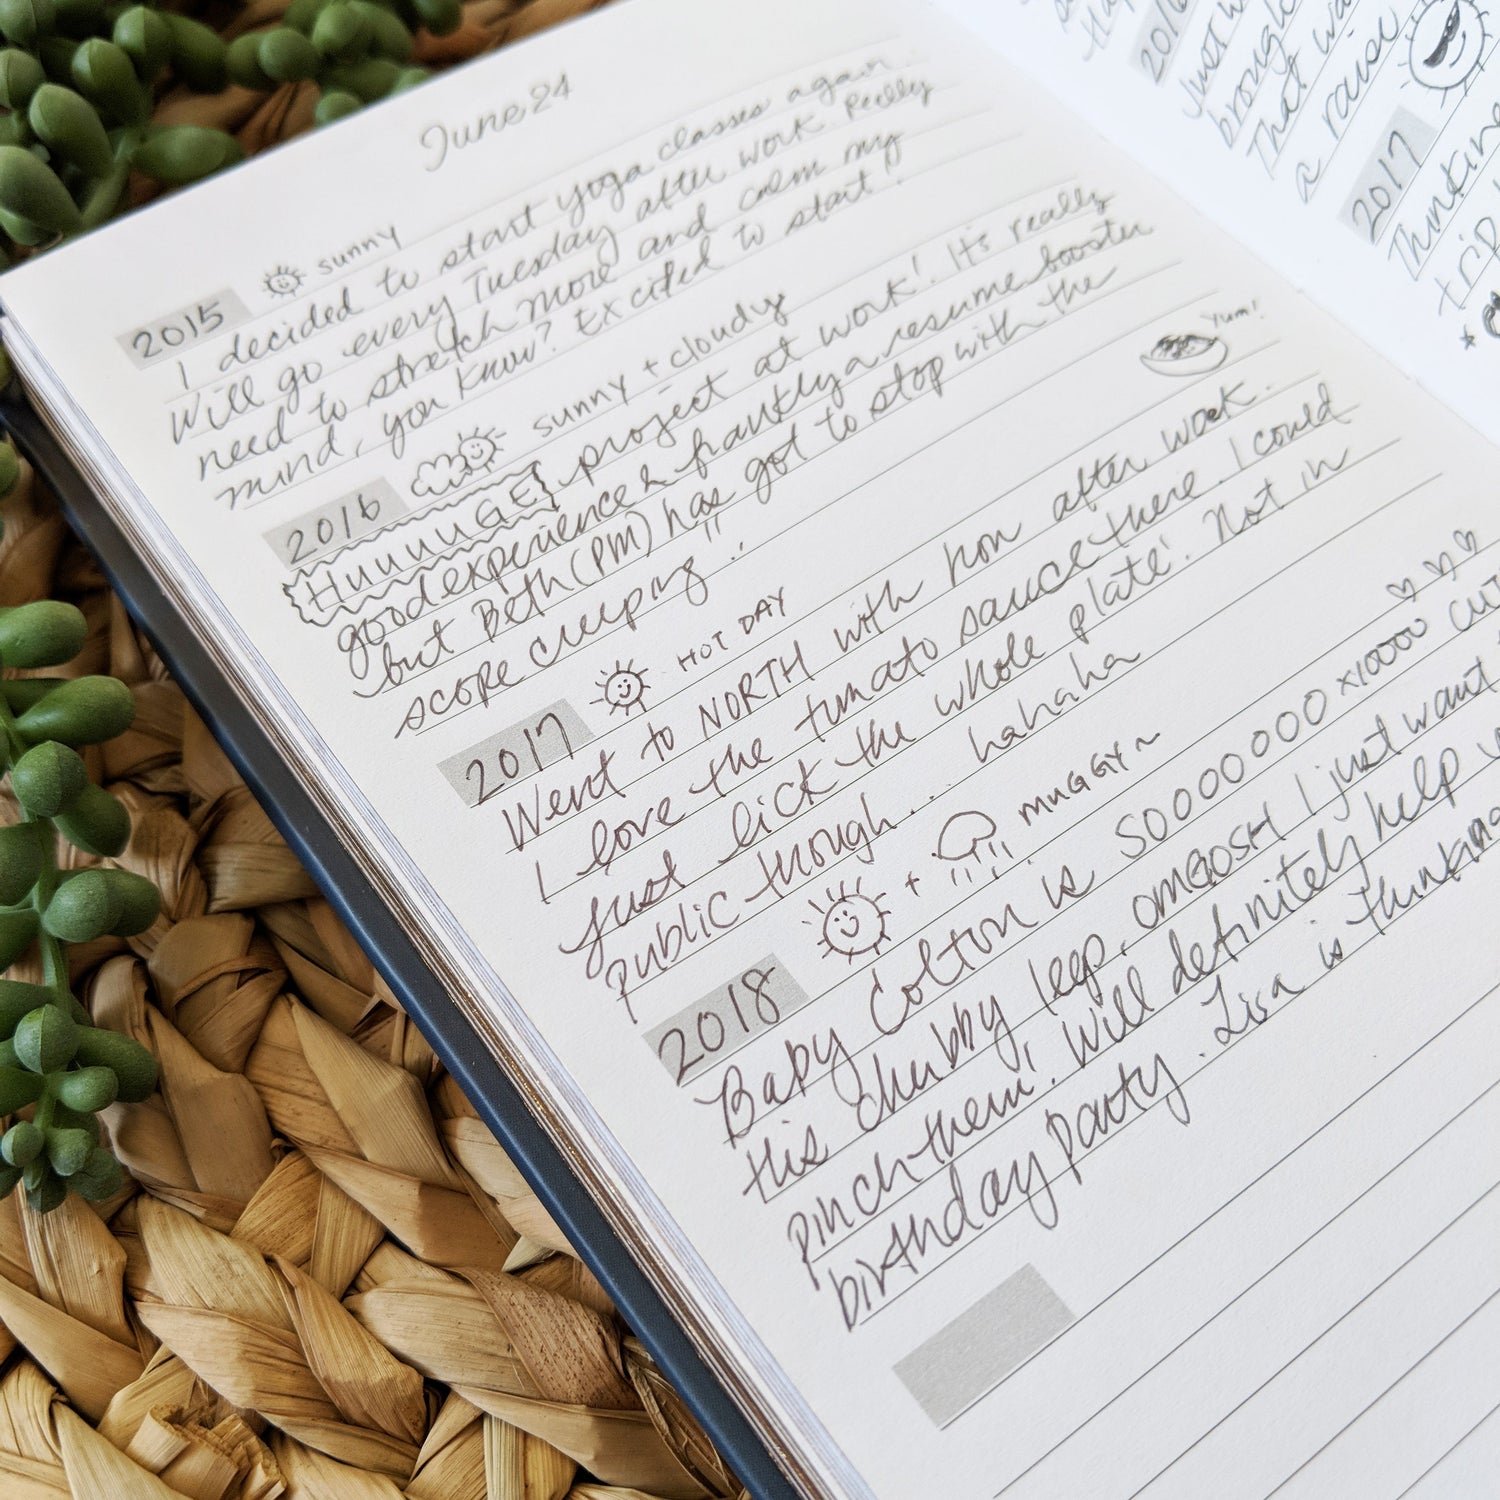 June 24
2015 sunny
I decided to start yoga classes again.
Will go every Tuesday after work. Really
need to stretch more and calm my
mind, you know? Excited to start!
2016 sunny + cloudy
Huuuuge project at work! It's really
good experience & frankly a resume booster
but Beth (PM) has got to stop with the
scope creeping!!
Yum!
2017 HOT DAY
Went to NORTH with hon after work.
I love the tomato sauce there. I could
just lick the whole plate! Not in
public though... hahaha
2018 + MUGGY~
Baby Colton is SOOOOOOO x10000
His chubby leep, OMGOSH I just want
pinch them! Will definitely help
birthday party. Lisa is thinking
2016
Just
2017
Thinking